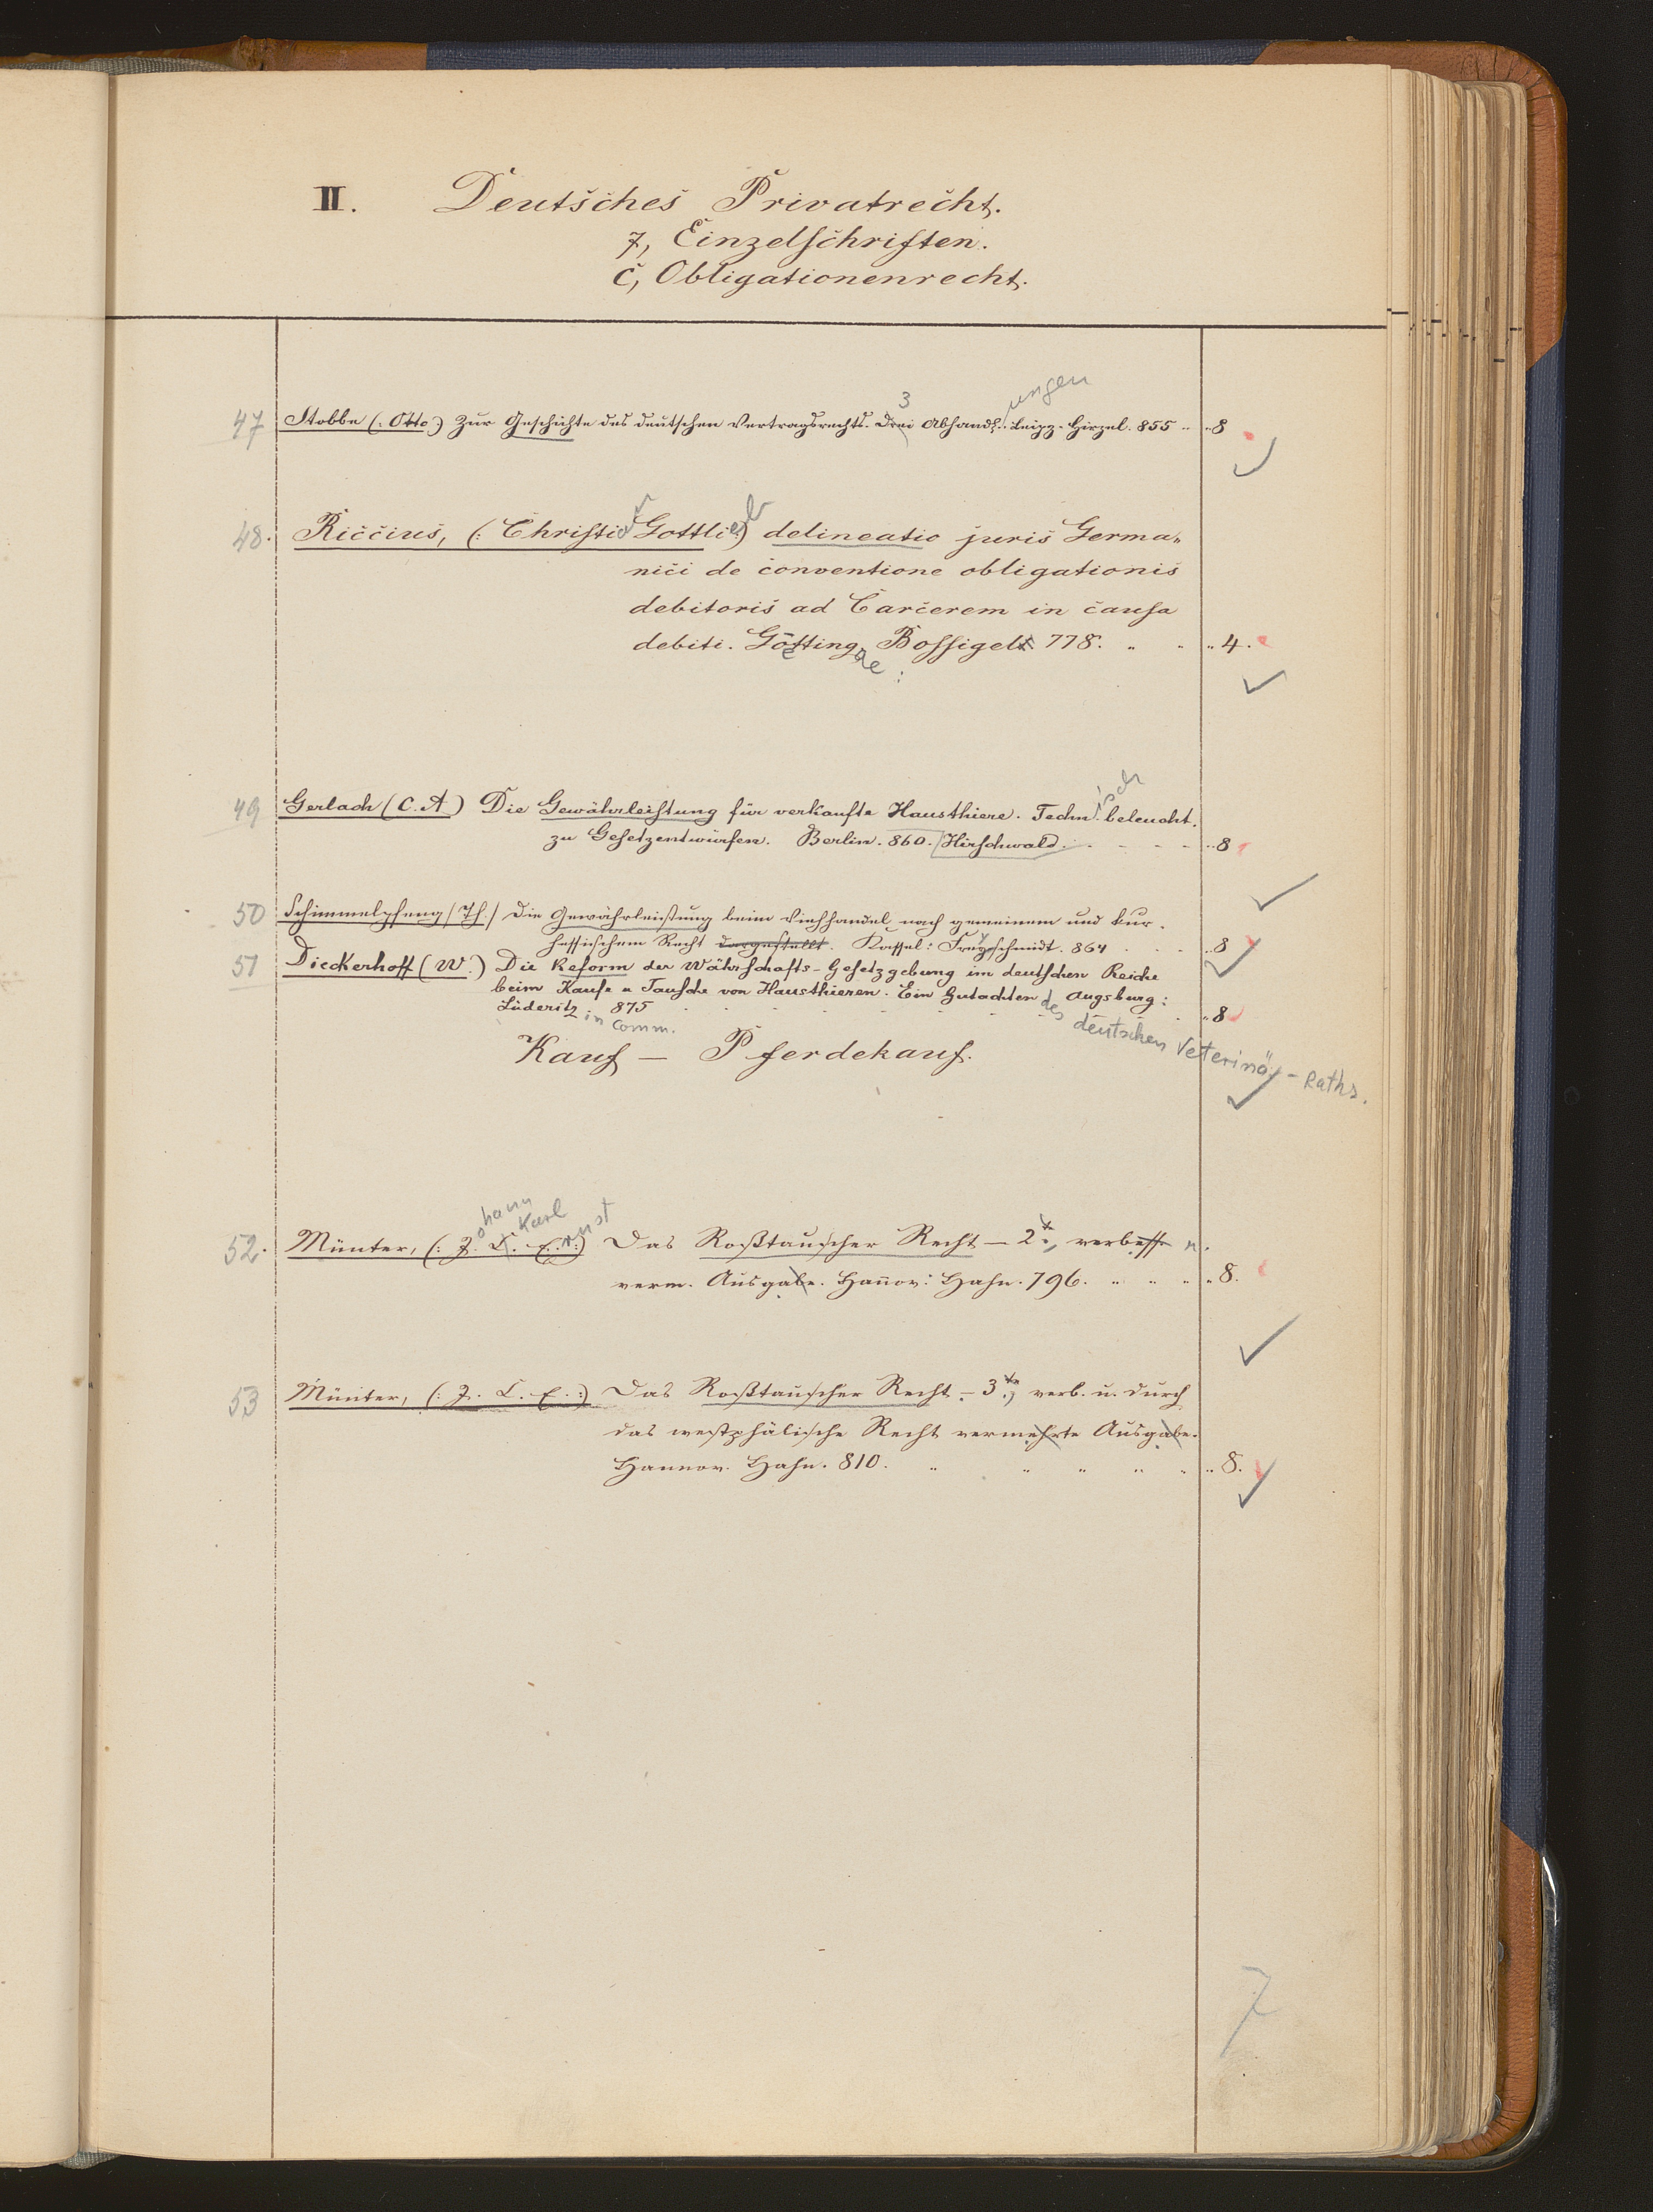 II. Deutsches Privatrecht.
7, Einzelschriften.
c, Obligationenrecht.
ungen
3
47 Stobbe (: Otto :) Zur Geschichte des deutschen Vertragsrechts. Drei Abhandl. Leipz. Hirzel. 855 „ „ 8
48. Riccius, (: Christi Gottlieb) delineatio juris Germa„
nici de conventione obligationis
debitoris ad Carcerem in causa
debiti. Götting. Bossigel 778. „ „ „ 4.
e ae :
isch
49 Gerlach (C. A) Die Gewährleistung für verkaufte Hausthiere. Techn. beleucht.
zu Gesetzentwürfen. Berlin. 860. Hirschwald. „ 8
50 Schimmelpfeng (Th.) Die Gewährleistung beim Viehhandel nach gemeinem und kur-
hessischem Recht dargestellt. Kassel: Freyschmidt. 864 „ 8
51 Dieckerhoff (W.) Die Reform der Währschafts-Gesetzgebung im deutschen Reiche
beim Kaufe u Tausche von Hausthieren. Ein Gutachten Augsburg:
Lüderitz 875 „ 8
in Comm.
des deutschen Veterinär-Raths.
Kauf — Pferdekauf.
ohann Karl rnst
52. Münter, (: J. K. E. :) Das Roßtauscher Recht — 2te, verbess u.
verm. Ausgabe. Hannov: Hahn. 796. „ „ „ 8.
53 Münter, (: J. C. E. :) Das Roßtauscher Recht – 3te, verb. u. durch
das westphälische Recht vermehrte Ausgabe.
Hannov. Hahn. 810. „ „ „ „ „ 8.
7